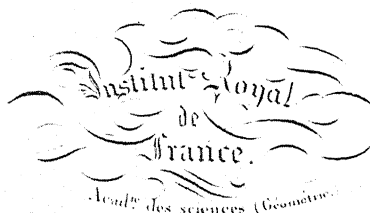 Institut Royal
de
France.
Acad.ie des sciences (Géométrie.